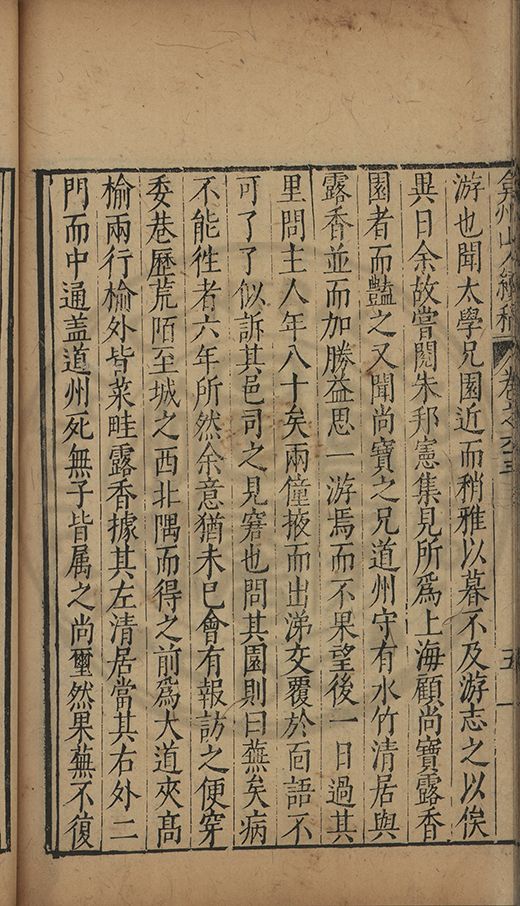 弇州山人續稿 卷之六十三 五
游也聞太學兄園近而稍雅以暮不及游志之以俟
異日余故嘗閱朱邦憲集見所爲上海顧尚寶露香
園者而豔之又聞尚寶之兄道州守有水竹清居與
露香並而加勝益思一游焉而不果望後一日過其
里問主人年八十矣兩僮掖而出涕交覆於面語不
可了了似訴其邑司之見窘也問其園則曰蕪矣病
不能徃者六年所然余意猶未已會有報訪之便穿
委巷歷荒陌至城之西北隅而得之前爲大道夾高
榆兩行榆外皆菜畦露香據其左清居當其右外二
門而中通盖道州死無子皆属之尚璽然果蕪不復